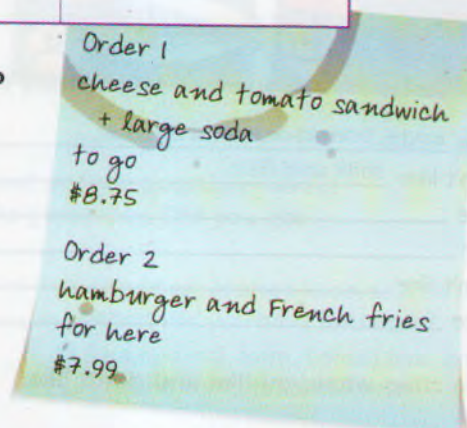 Order 1
cheese and tomato sandwich
+ large soda
to go
$8.75
Order 2
hamburger and French fries
for here
$7.99